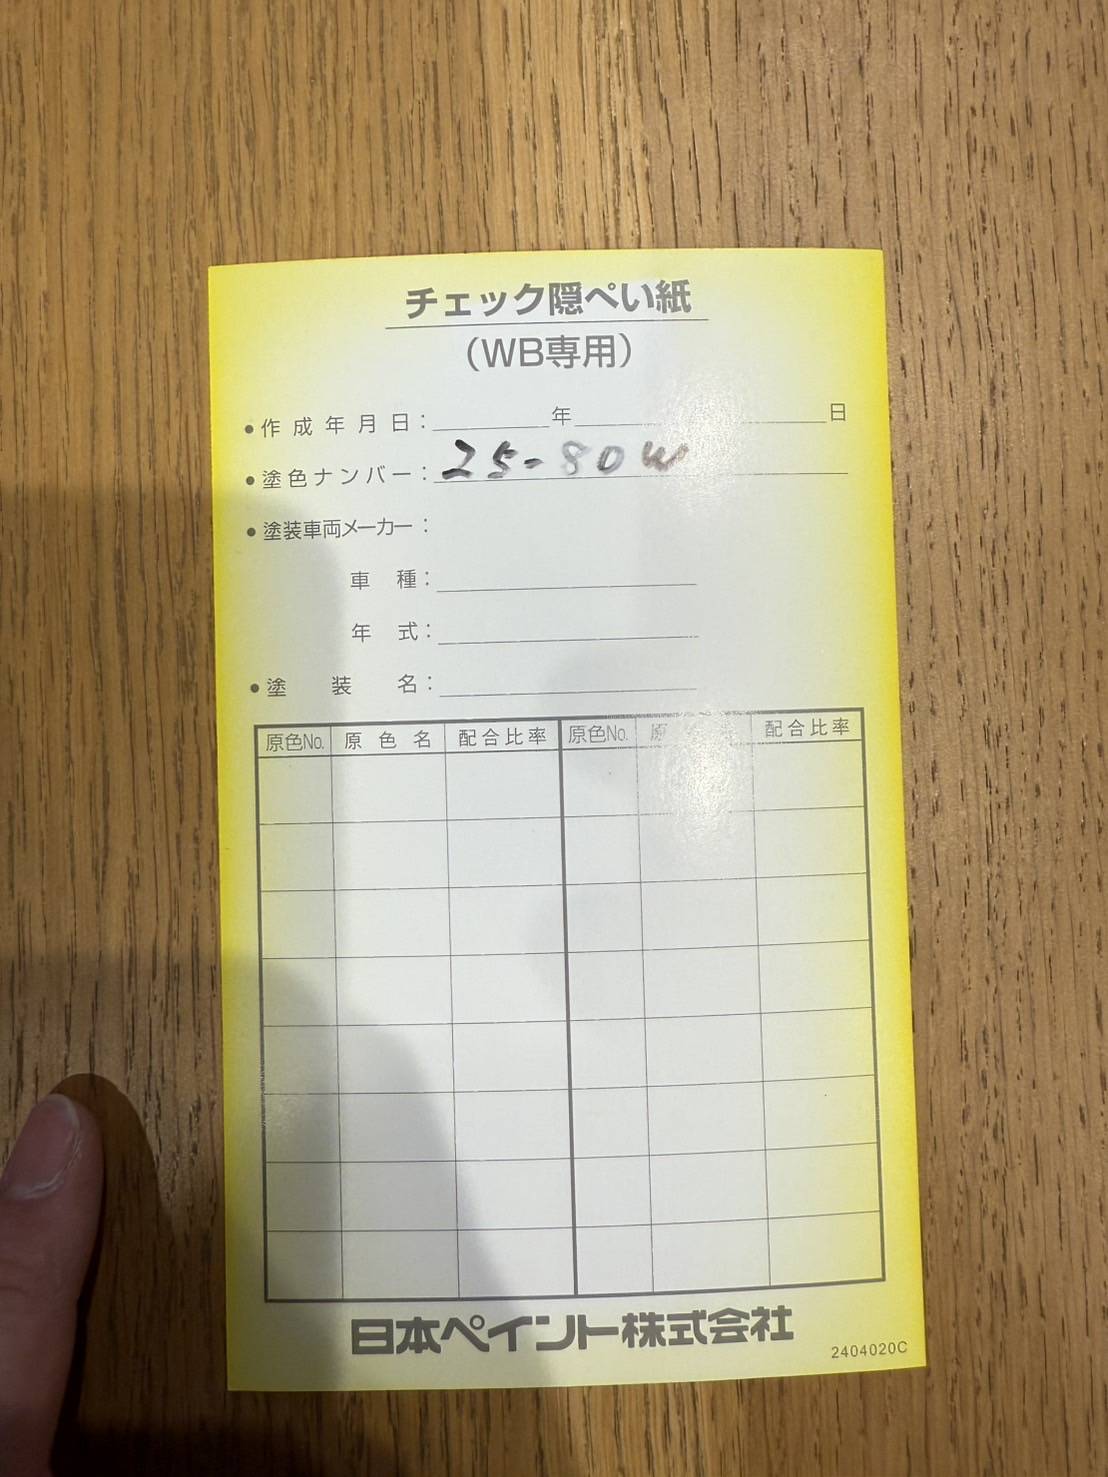 チェック隠ぺい紙
（WB専用）
●作成年月日：　年　日
●塗色ナンバー：25-80W
●塗装車両メーカー：
車種：
年式：
●塗装名：
原色No. 原色名 配合比率 原色No. 原 配合比率
日本ペイント株式会社
2404020C